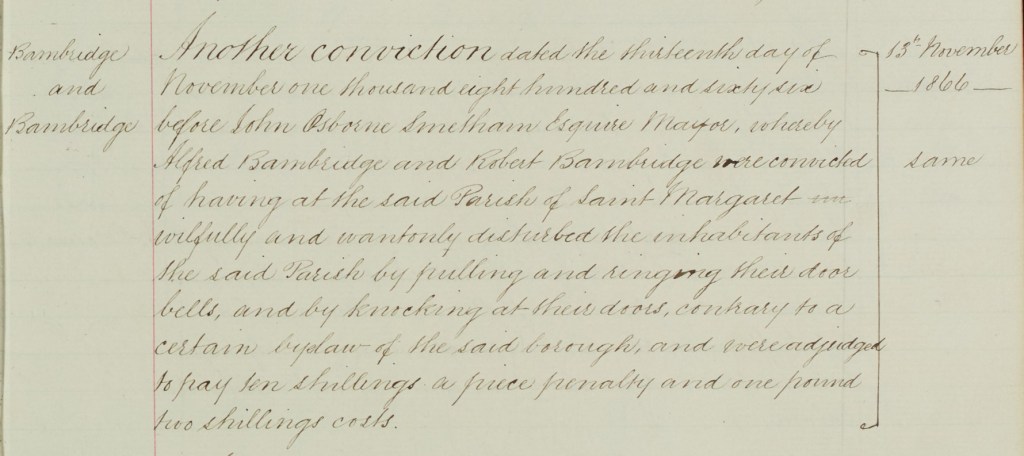 Bambridge
and
Bambridge
Another conviction dated the thirteenth day of
November one thousand eight hundred and sixty six
before John Osborne Smetham Esquire Mayor, whereby
Alfred Bambridge and Robert Bambridge were convicted
of having at the said Parish of Saint Margaret un
wilfully and wantonly disturbed the inhabitants of
the said Parish by pulling and ringing their door
bells, and by knocking at their doors, contrary to a
certain byelaw of the said borough, and were adjudged
to pay ten shillings a piece penalty and one pound
two shillings costs.
13th November
1866
same